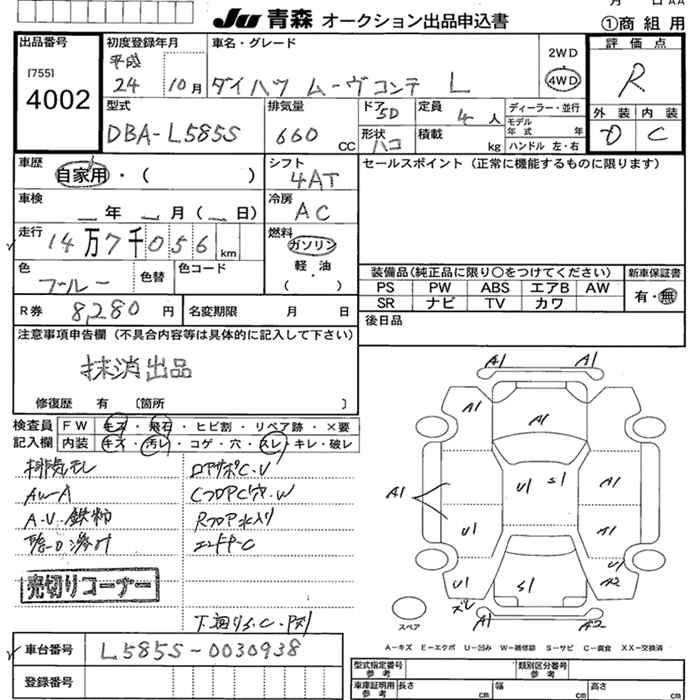 月 日 AA
JU 青森 オークション出品申込書
①商組用
出品番号
[755]
4002
初度登録年月
平成
24 10月
車名・グレード
ダイハツ ムーヴコンテ L
2WD
4WD
評価点
R
外装 内装
D C
型式
DBA-L585S
排気量
660 CC
ドア 5D
形状 ハコ
定員 4人
積載 kg
ディーラー・並行
モデル年式 年
ハンドル 左・右
車歴
自家用・( )
シフト
4AT
セールスポイント(正常に機能するものに限ります)
車検
年 月(日)
冷房
AC
走行
14万7千056km
燃料
ガソリン
軽・油
( )
色
ブルー
色替
色コード
装備品(純正品に限り○をつけてください)
PS PW ABS エアB AW
SR ナビ TV カワ
新車保証書
有・無
R券
8,280円
名変期限 月 日
後日品
注意事項申告欄(不具合内容等は具体的に記入して下さい)
抹消出品
修復歴 有〔箇所 〕
検査員記入欄
FW キズ・飛石・ヒビ割・リペア跡・×要
内装 キズ・汚レ・コゲ・穴・スレ・キレ・破レ
排気モレ
AW-A
A・V 鉄粉
ロアサポC・V
CフロアC穴・W
Rフロア水入り
エンドP-C
売切りコーナー
下廻りS.C・P欠
車台番号
L585S-0030938
登録番号
A1 A1
A1
A1
A1
U1 S1
A1
U1
A1
U1
A2
U1
S1
A1
A2
スペア
A-キズ E-エクボ U-凹み W-補修跡 S-サビ C-腐食 XX-交換済
型式指定番号 参考
類別区分番号 参考
車庫証明用 参考
長さ cm
幅 cm
高さ cm